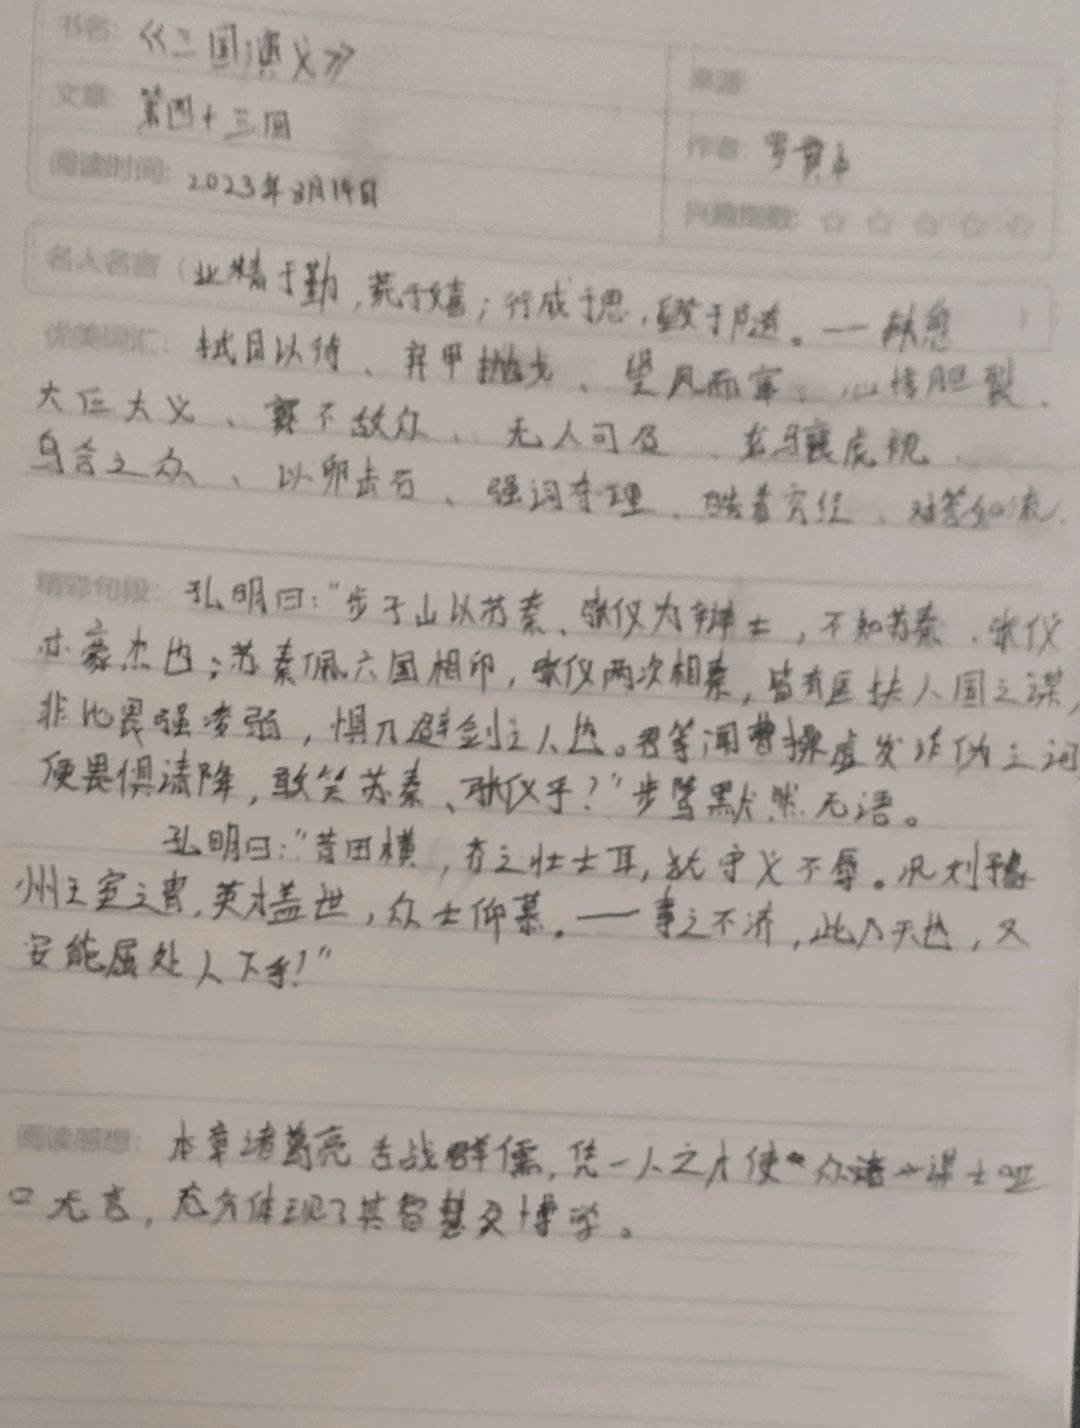 书名: 《三国演义》
来源
文章: 第四十三回
作者: 罗贯中
阅读时间: 2023年8月14日
兴趣指数: ☆ ☆ ☆ ☆ ☆
名人名言(业精于勤,荒于嬉;行成于思,毁于随。——韩愈)
优美词汇: 拭目以待、弃甲抛戈、望风而窜、心惊胆裂、
大仁大义、寡不敌众、无人可及、龙骧虎视、
乌合之众、以卵击石、强词夺理、皓首穷经、对答如流.
精彩句段: 孔明曰:“步子山以苏秦、张仪为辩士,不知苏秦、张仪
亦豪杰也;苏秦佩六国相印,张仪两次相秦,皆有匡扶人国之谋,
非比畏强凌弱,惧刀避剑之人也。君等闻曹操虚发诈伪之词
便畏惧请降,敢笑苏秦、张仪乎?”步骘默然无语。
孔明曰:“昔田横,齐之壮士耳,犹守义不辱。况刘豫
州王室之胄,英才盖世,众士仰慕。——事之不济,此乃天也,又
安能屈处人下乎!”
阅读感想: 本章诸葛亮舌战群儒,凭一人之才使众谋士哑
口无言,充分体现了其智慧及博学。